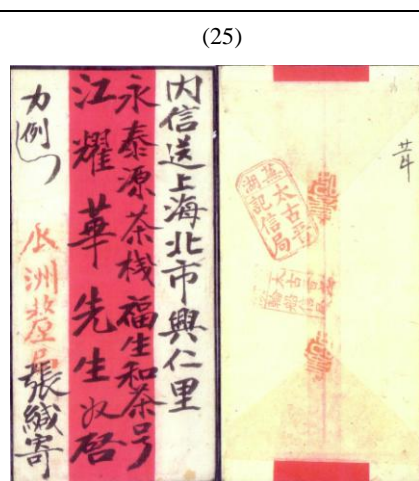 (25)
内信送上海北市興仁里
永泰源茶栈福生和茶号
江耀華先生收启
力例
洲 張緘寄
蕪湖
太古晋
記信局